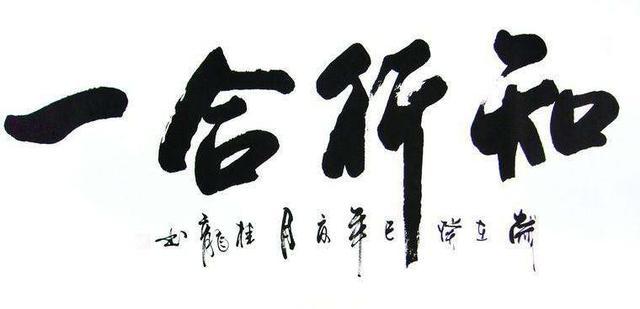 和行合一
歲在癸巳年夏月桂龍书